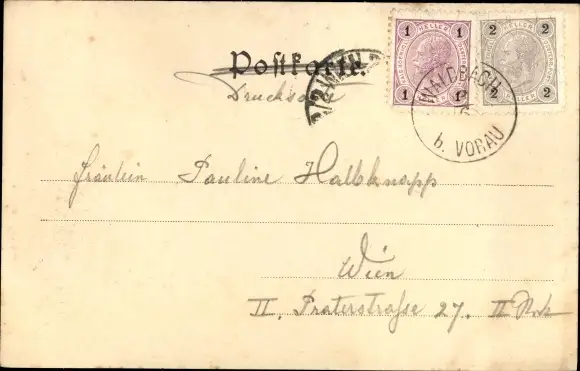 Postkarte.
Drucksache
1 HELLER 1
1 1
2 HELLER 2
2 2
WALDBACH
b. VORAU
Fräulein Pauline Halbknapp
Wien
II. Praterstrasse 27. II